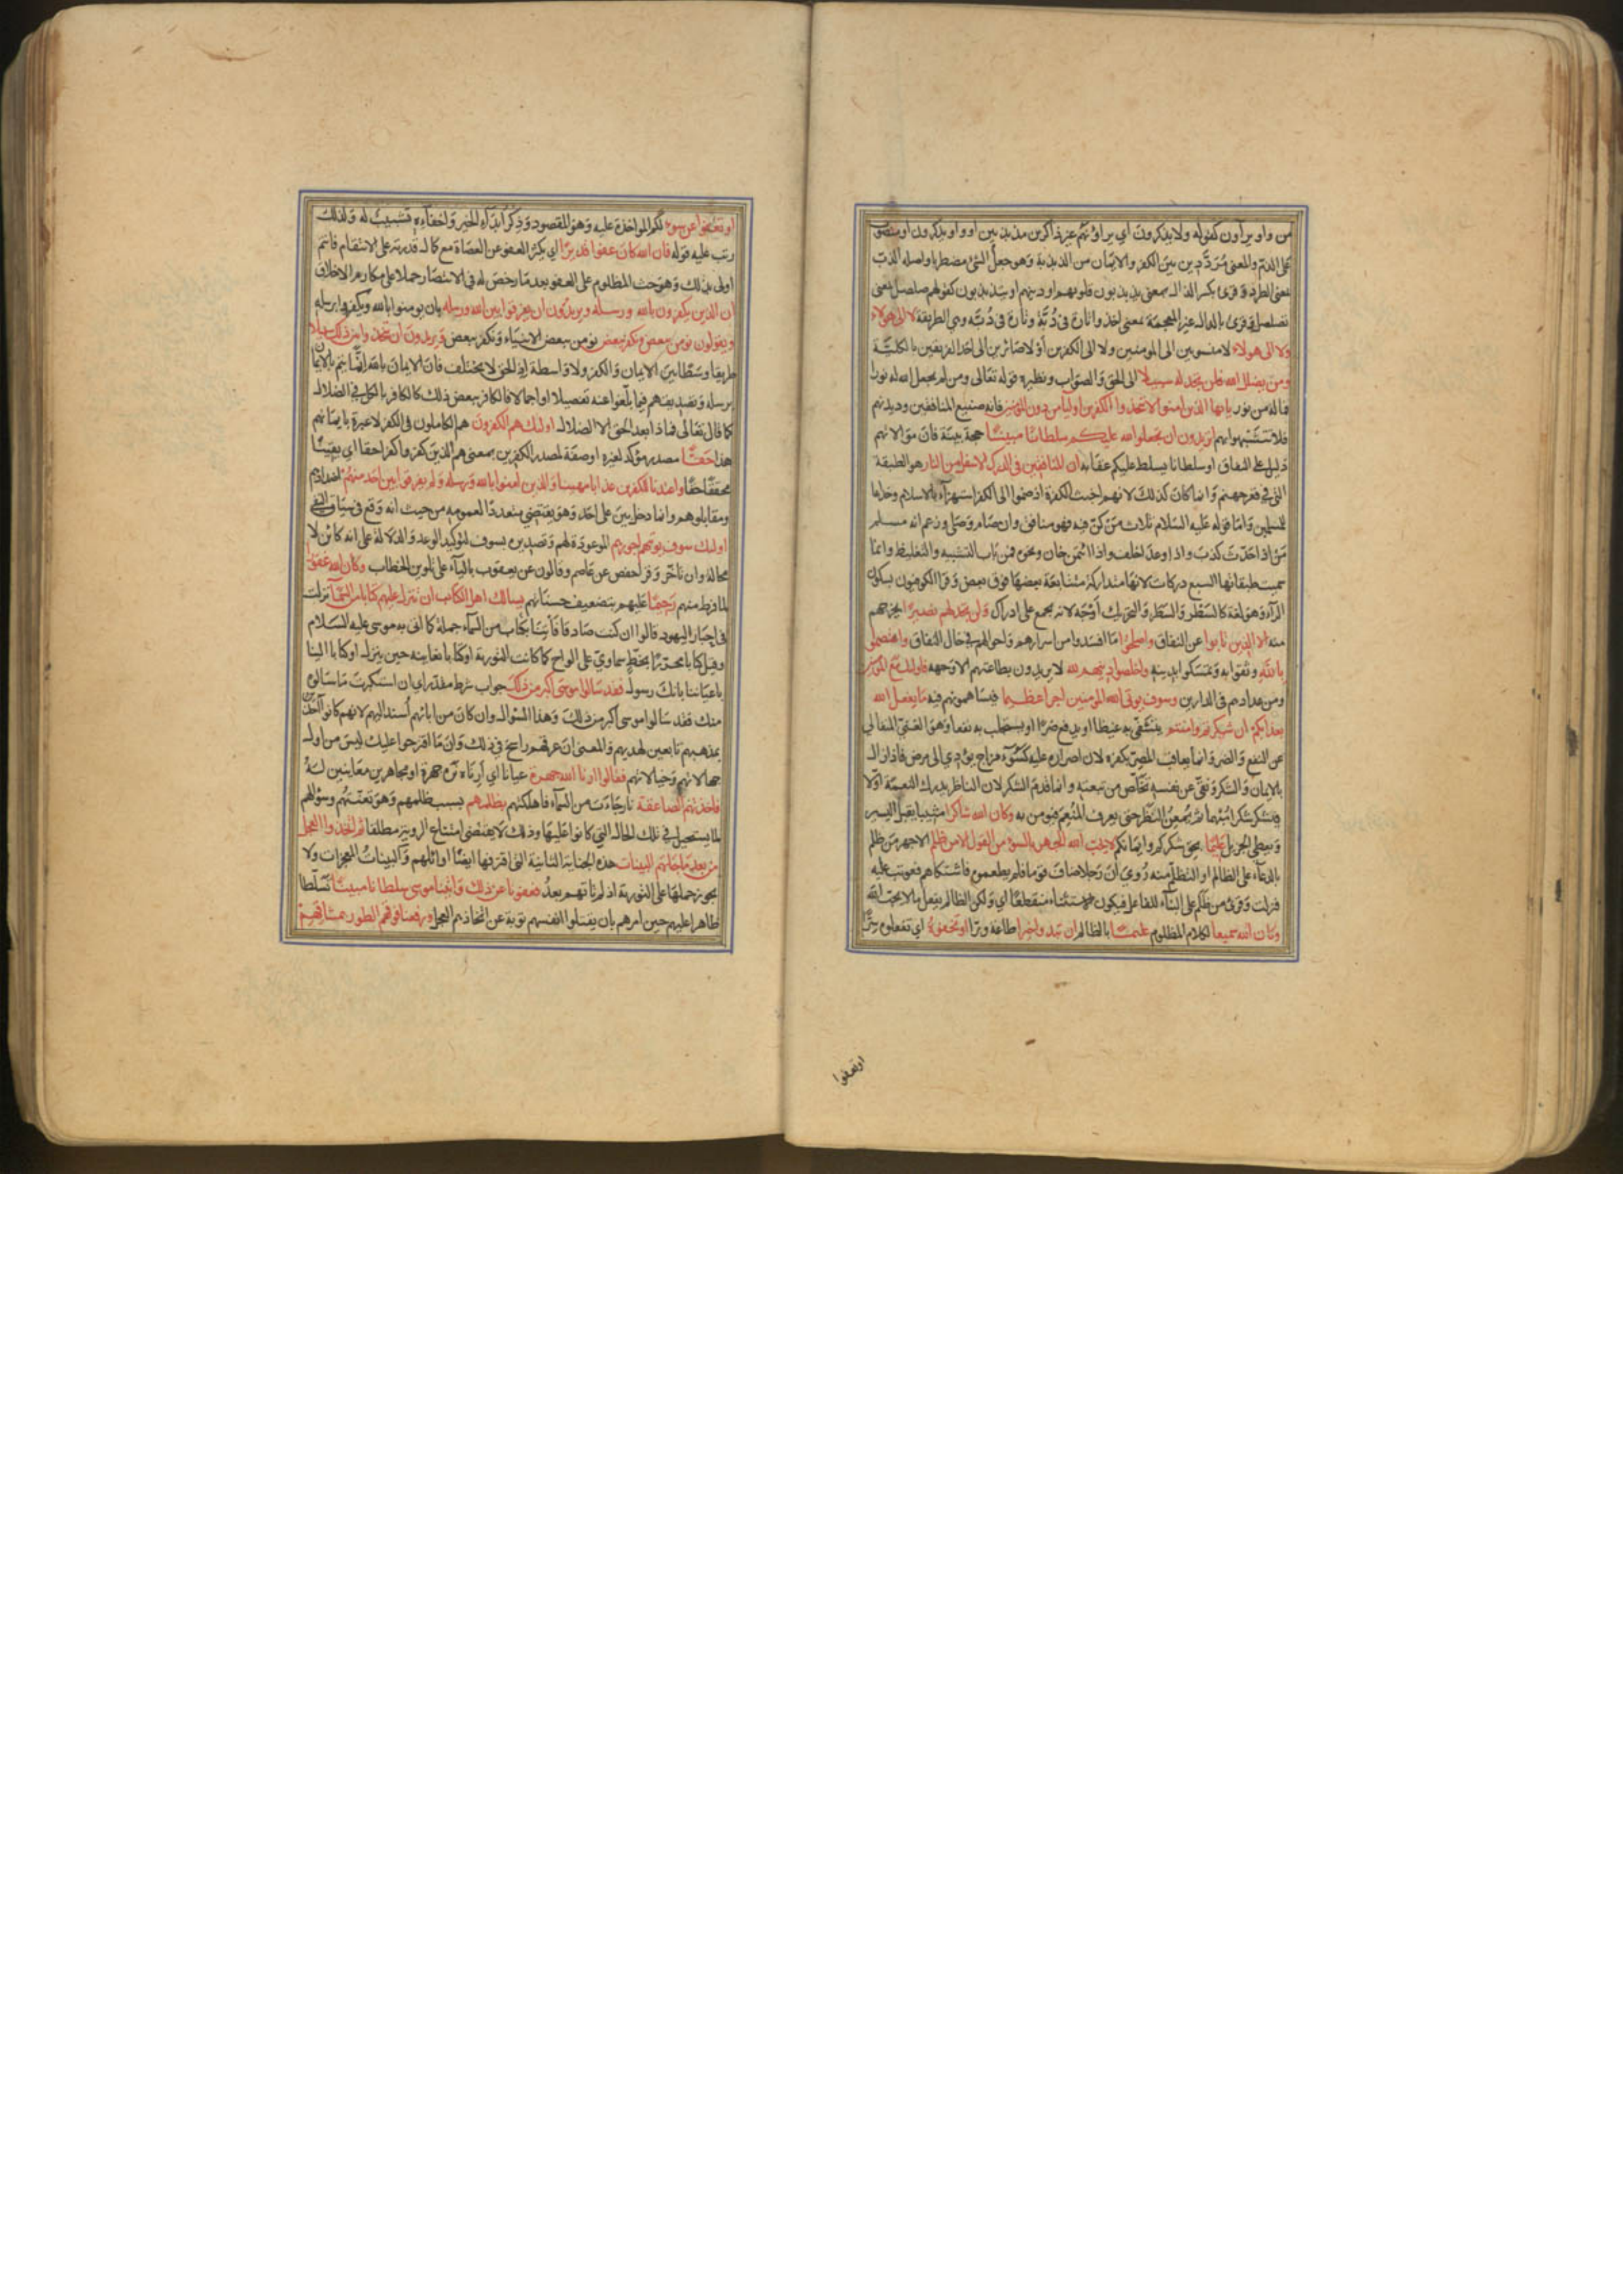 من واو يرآون كقوله ولا يذكرون اي يراونهم غير ذاكرين مذبذبين او واو يذكرون او منصوب
على الذم والمعنى مرددين بين الكفر والايمان من الذبذبة وهو جعل الشئ مضطربا واصله الذب
بمعنى الطرد وقرئ بكسر الذال بمعنى يذبذبون قلوبهم او دينهم او يتذبذبون كقولهم صلصل بمعنى
تصلصل وقرئ بالدال غير المعجمة بمعنى اخذوا تارة فى دبة وتارة فى دبة وهى الطريقة لا الى هولاء
ولا الى هولاء لا منسوبين الى المومنين ولا الى الكفرين او لا صائرين الى احد الفريقين بالكلية
ومن يضلل الله فلن تجد له سبيلا الى الحق والصواب ونظيره قوله تعالى ومن لم يجعل الله له نورا
فما له من نور يايها الذين امنوا لا تتخذوا الكفرين اوليا من دون المؤمنين فانه صنيع المنافقين وديدنهم
فلا تتشبهوا بهم اتريدون ان تجعلوا لله عليكم سلطانا مبينا حجة بينة فان موالاتهم
دليل على النفاق او سلطانا يسلط عليكم عقابه ان المنافقين فى الدرك الاسفل من النار هو الطبقة
التى فى قعر جهنم وانما كان كذلك لانهم اخبث الكفرة اذ ضموا الى الكفر استهزاء بالاسلام وخداعا
للمسلمين واما قوله عليه السلام ثلاث من كن فيه فهو منافق وان صام وصلى وزعم انه مسلم
من اذا حدث كذب واذا وعد اخلف واذا ائتمن خان ونحوه فمن باب التشبيه والتغليظ وانما
سميت طبقاتها السبع دركات لانها متداركة متتابعة بعضها فوق بعض وقرا الكوفيون بسكون
الرآء وهو لغة كالسطر والسطر والتحريك اوجه لانه يجمع على ادراك ولن تجد لهم نصيرا يخرجهم
منه الا الذين تابوا عن النفاق واصلحوا ما افسدوا من اسرارهم واحوالهم فى حال النفاق واعتصموا
بالله وثقوا به وتمسكوا بدينه واخلصوا دينهم لله لا يريدون بطاعتهم الا وجهه فاولئك مع المؤمنين
ومن عدادهم فى الدارين وسوف يوتى الله المومنين اجرا عظيما فيساهمونهم فيه ما يفعل الله
بعذابكم ان شكرتم وامنتم يتشفى به غيظا او يدفع ضرا او يستجلب به نفعا وهو الغنى المتعالى
عن النفع والضر وانما يعاقب المصر بكفره لان اصراره عليه كسوء مزاج يؤدى الى مرض فاذا زال
بالايمان والشكر ونقى عن نفسه تخلص من تبعته وانما قدم الشكر لان الناظر يدرك النعمة اولا
فيشكر شكرا مبهما ثم يمعن النظر حتى يعرف المنعم فيومن به وكان الله شاكرا مثيبا يقبل اليسير
ويعطى الجزيل عليما بحق شكركم وايمانكم لا يحب الله الجهر بالسوء من القول الا من ظلم الا جهر من ظلم
بالدعآء على الظالم او التظلم منه روى ان رجلا ضاف قوما فلم يطعموه فاشتكاهم فعوتب عليه
فنزلت وقرئ من ظلم على البناء للفاعل فيكون استثناء منقطعا اى ولكن الظالم يفعل ما لا يحب الله
وكان الله سميعا لكلام المظلوم عليما بالظالم ان تبدوا خيرا طاعة وبرا او تخفوه اى تفعلوه سرا
اوتعفوا
او تعفوا عن سوء لكم المواخذة عليه وهو المقصود وذكر ابدآء الخير واخفآءه تشبيب له ولذلك
رتب عليه قوله فان الله كان عفوا قديرا اى يكثر العفو عن العصاة مع كمال قدرته على الانتقام فانتم
اولى بذلك وهو حث المظلوم على العفو بعد ما رخص له فى الانتصار حملا على مكارم الاخلاق
ان الذين يكفرون بالله ورسله ويريدون ان يفرقوا بين الله ورسله بان يومنوا بالله ويكفروا برسله
ويقولون نؤمن ببعض ونكفر ببعض نؤمن ببعض الانبياء ونكفر ببعض ويريدون ان يتخذوا بين ذلك سبيلا
طريقا وسطا بين الايمان والكفر ولا واسطة اذ الحق لا يختلف فان الايمان بالله انما يتم بالايمان
برسله وتصديقهم فيما بلغوا عنه تفصيلا او اجمالا فالكافر ببعض ذلك كالكافر بالكل فى الضلال
كما قال تعالى فماذا بعد الحق الا الضلال اولئك هم الكفرون هم الكاملون فى الكفر لا عبرة بايمانهم
هذا حقا مصدر مؤكد لغيره او صفة لمصدر الكفرين بمعنى هم الذين كفروا كفرا حقا اى يقينا
محققا حقا واعتدنا للكفرين عذابا مهينا والذين امنوا بالله ورسله ولم يفرقوا بين احد منهم اضدادهم
ومقابلوهم وانما دخل بين على احد وهو يقتضى متعددا لعمومه من حيث انه وقع فى سياق النفى
اولئك سوف يوتيهم اجورهم الموعودة لهم وتصديره بسوف لتوكيد الوعد والدلالة على انه كائن لا
محالة وان تاخر وقرا حفص عن عاصم وقالون عن يعقوب باليآء على تلوين الخطاب وكان الله غفورا
لما فرط منهم رحيما عليهم بتضعيف حسناتهم يسالك اهل الكتاب ان تنزل عليهم كتابا من السمآء نزلت
فى احبار اليهود قالوا ان كنت صادقا فأتنا بكتاب من السمآء جملة كما اتى به موسى عليه السلام
وقيل كتابا محررا بخط سماوى على الواح كما كانت التورية او كتابا نعاينه حين ينزل او كتابا الينا
باعياننا بانك رسول فقد سالوا موسى اكبر من ذلك جواب شرط مقدر اى ان استكبرت ما سالوه
منك فقد سالوا موسى اكبر من ذلك وهذا السؤال وان كان من ابائهم اسند اليهم لانهم كانوا آخذين
بمذهبهم تابعين لهديهم والمعنى ان عرقهم راسخ فى ذلك وان ما اقترحوا عليك ليس من اول
جهالاتهم وخيالاتهم فقالوا ارنا الله جهرة عيانا اى ارناه نره جهرة او مجاهرين معاينين له
فاخذتهم الصاعقة نار جاءت من السمآء فاهلكتهم بظلمهم بسبب ظلمهم وهو تعنتهم وسؤالهم
لما يستحيل فى تلك الحال التى كانوا عليها وذلك لا يقتضى امتناع الروية مطلقا ثم اتخذوا العجل
من بعد ما جاءتهم البينات هذه الجناية الثانية التى اقترفها ايضا اوائلهم والبينات المعجزات ولا
يجوز حملها على التورية اذ لم تاتهم بعد فعفونا عن ذلك وآتينا موسى سلطانا مبينا تسلطا
ظاهرا عليهم حين امرهم بان يقتلوا انفسهم توبة عن اتخاذهم العجل ورفعنا فوقهم الطور بميثاقهم